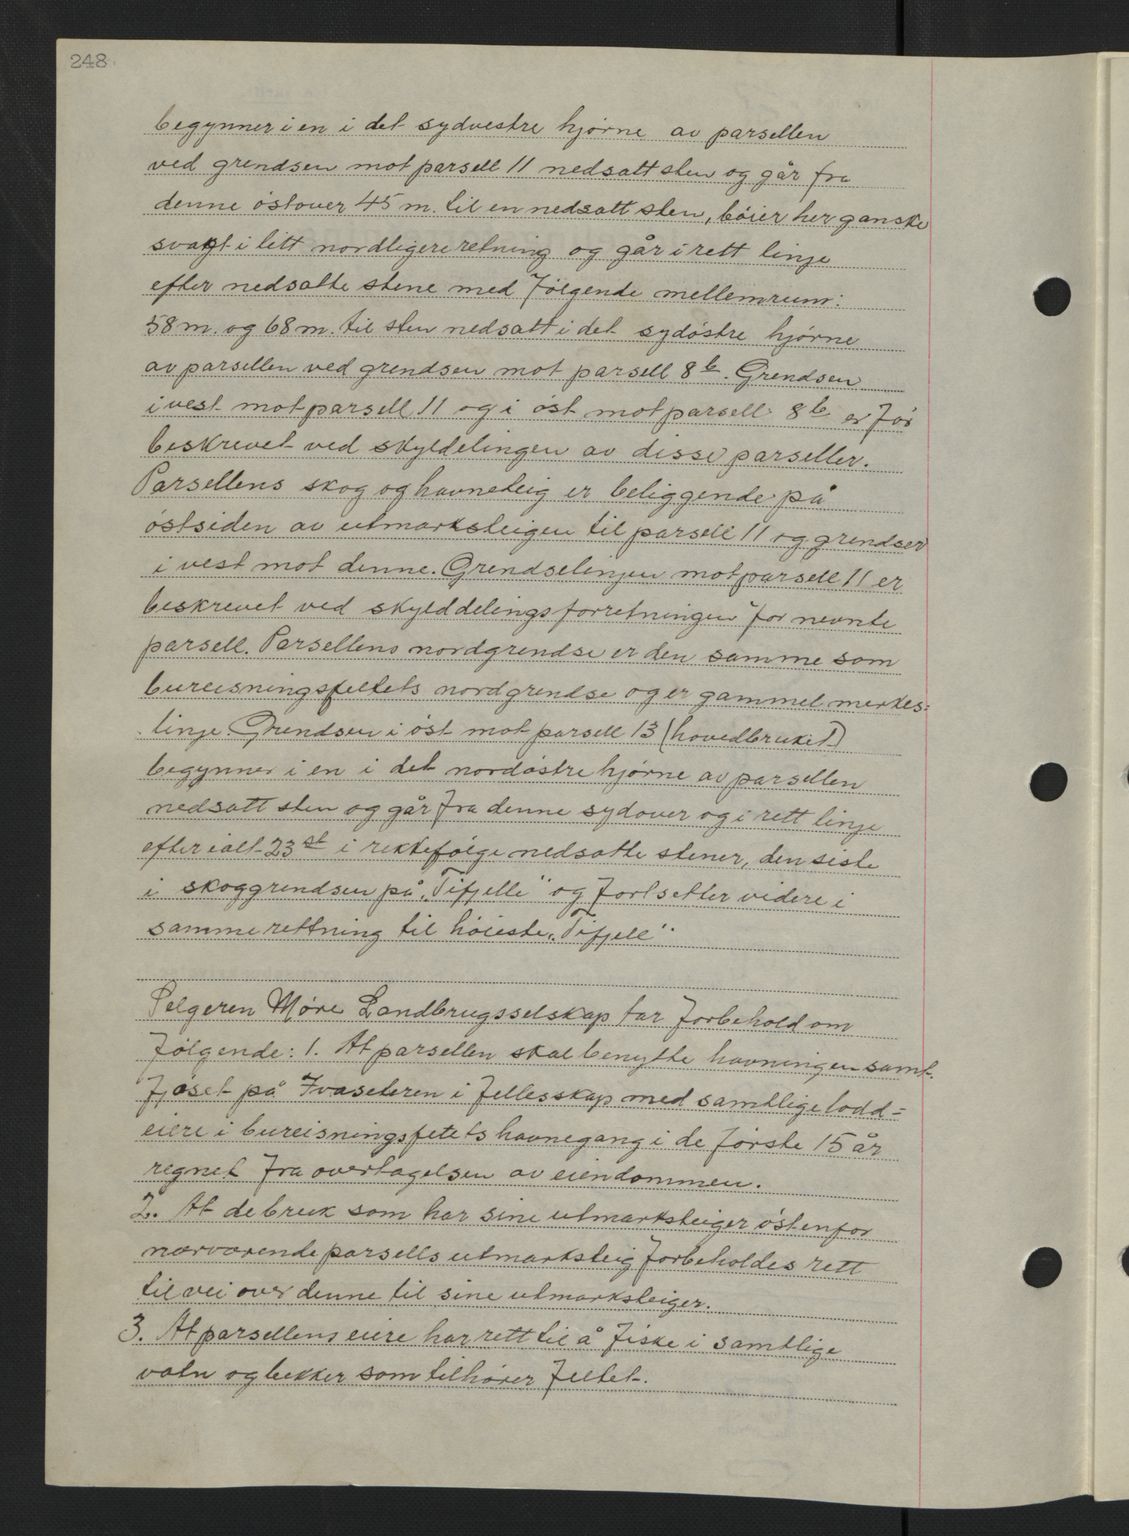 248
begynner i en i det sydvestre hjörne av parsellen
ved grendsen mot parsell 11 nedsatt sten og går fra
denne östover 45 m. til en nedsatt sten, böier her ganske
svagt i litt nordligere retning og går i rett linje
efter nedsatte stene med følgende mellemrum:
58 m. og 68 m. til sten nedsatt i det sydöstre hjörne
av parsellen ved grendsen mot parsell 8 b. Grendsen
i vest mot parsell 11 og i öst mot parsell 8 b er för
beskrevet ved skyldelingen av disse parseller.
Parsellens skog og havneteig er beliggende på
östsiden av utmarksteigen til parsell 11 og grendser
i vest mot denne. Grendselinjen mot parsell 11 er
beskrevet ved skylddelingsforretningen for nevnte
parsell. Parsellens nordgrendse er den samme som
bureisningsfeltets nordgrendse og er gammel merkes=
linje Grendsen i öst mot parsell 13 (hovedbruket)
begynner i en i det nordöstre hjörne av parsellen
nedsatt sten og går fra denne sydover og i rett linje
efter ialt 23 st i rekkefölge nedsatte stener, den siste
i skoggrendsen på „Tifjelle" og fortsetter videre i
samme rettning til höieste „Tifjell"
Selgeren Möre Landbrugsselskap tar forbehold om
følgende: 1. At parsellen skal benytte havningen samt
fjöset på Ivaseteren i fellesskap med samtlige lodd=
eiere i bureisningsfetets havnegang i de förste 15 år
regnet fra overtagelsen av eiendommen.
2. At de bruk som har sine utmarksteiger östenfor
nærværende parsells utmarksteig forbeholdes rett
til vei over denne til sine utmarksteiger.
3. At parsellens eiere har rett til å fiske i samtlige
vatn og bekker som tilhörer feltet.